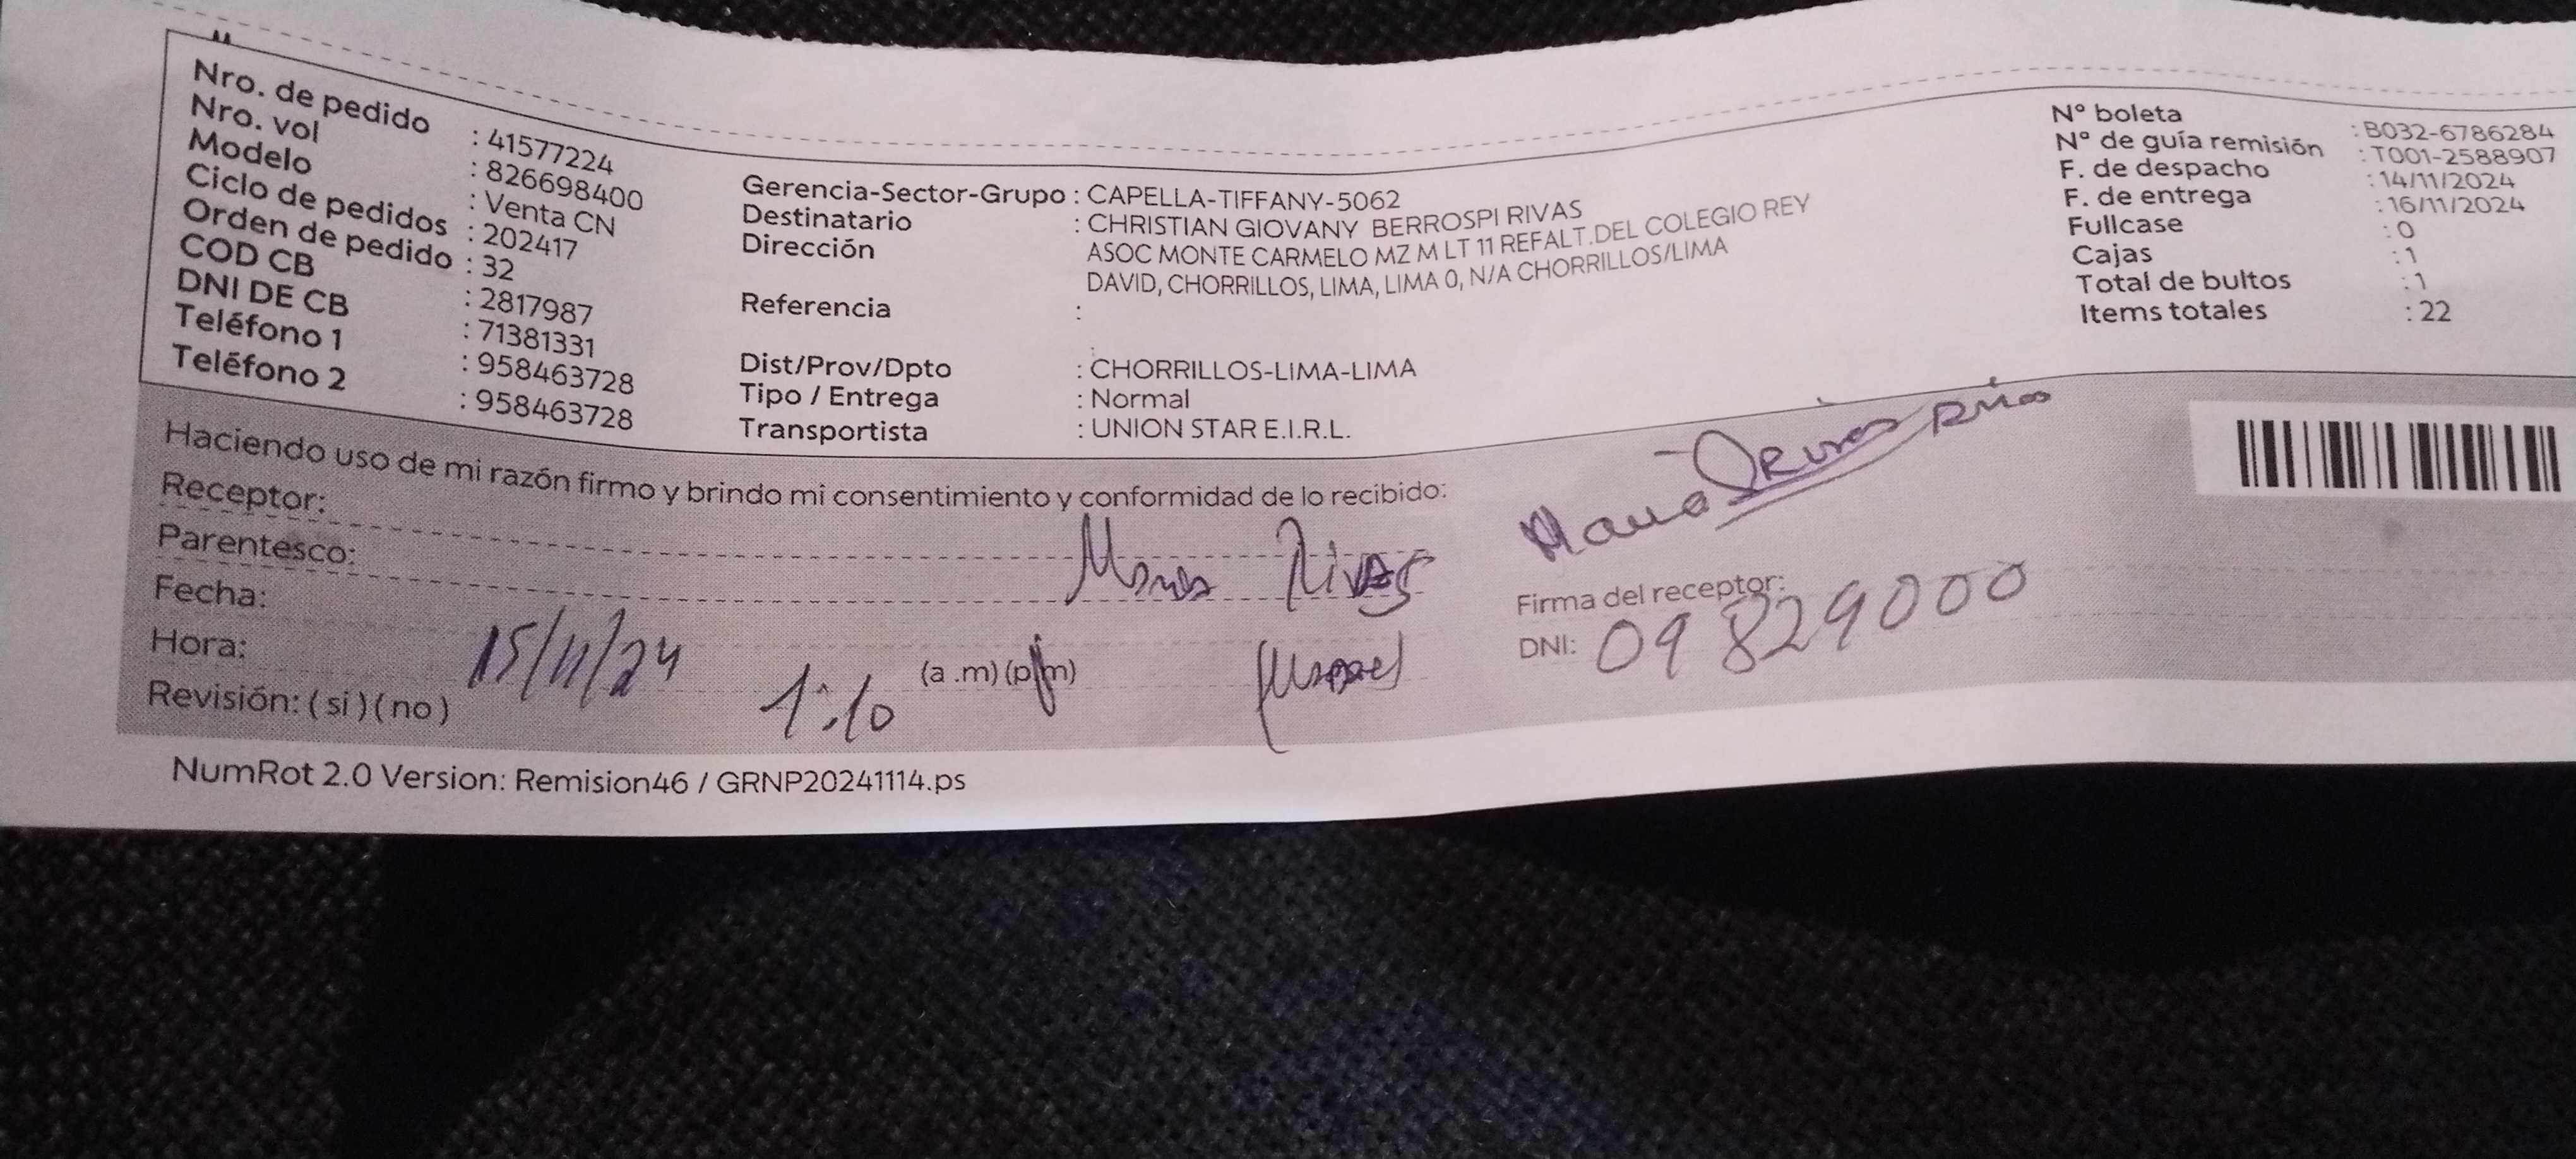 Nro. de pedido : 41577224
Nro. vol : 826698400
Modelo : Venta CN
Ciclo de pedidos : 202417
Orden de pedido : 32
COD CB : 2817987
DNI DE CB : 71381331
Teléfono 1 : 958463728
Teléfono 2 : 958463728
Gerencia-Sector-Grupo : CAPELLA-TIFFANY-5062
Destinatario : CHRISTIAN GIOVANY BERROSPI RIVAS
Dirección : ASOC MONTE CARMELO MZ M LT 11 REFALT.DEL COLEGIO REY
DAVID, CHORRILLOS, LIMA, LIMA 0, N/A CHORRILLOS/LIMA
Referencia :
Dist/Prov/Dpto : CHORRILLOS-LIMA-LIMA
Tipo / Entrega : Normal
Transportista : UNION STAR E.I.R.L.
N° boleta : B032-6786284
N° de guía remisión : T001-2588907
F. de despacho : 14/11/2024
F. de entrega : 16/11/2024
Fullcase : 0
Cajas : 1
Total de bultos : 1
Items totales : 22
Haciendo uso de mi razón firmo y brindo mi consentimiento y conformidad de lo recibido:
Receptor: Rivas
Parentesco:
Fecha: 15/11/24
Hora: 1:10 (a .m) (p.m)
Revisión: ( si ) ( no )
Firma del receptor:
DNI: 09829000
NumRot 2.0 Version: Remision46 / GRNP20241114.ps